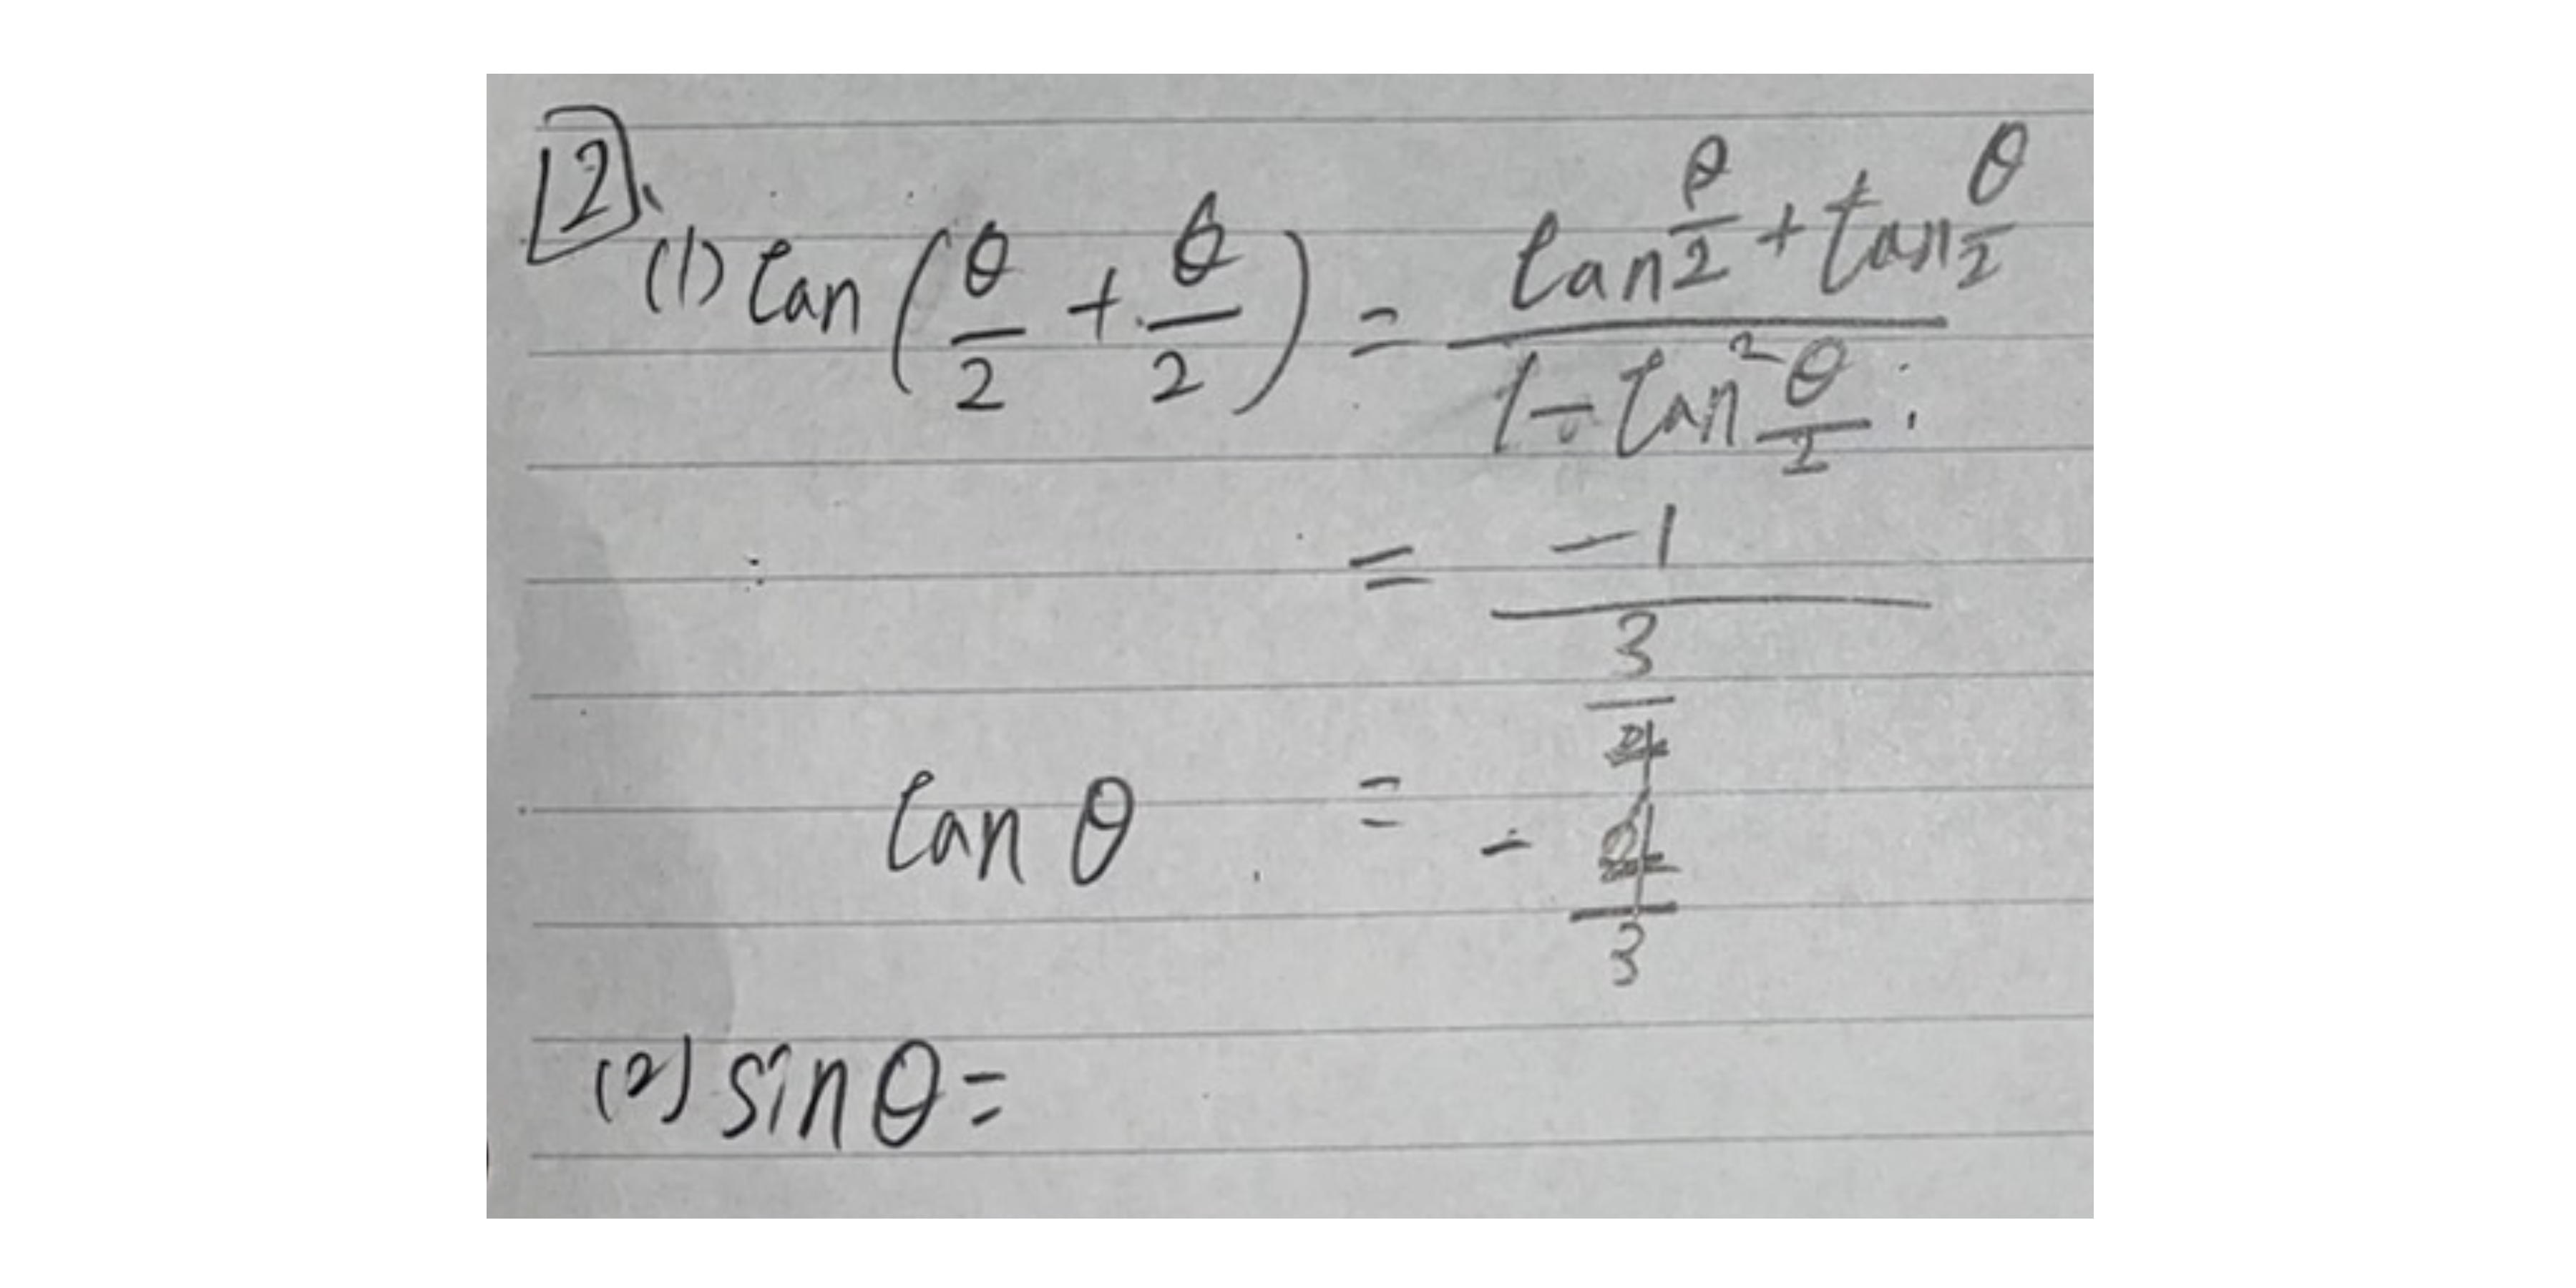 [2].
(1) tan(θ/2 + θ/2) = (tan θ/2 + tan θ/2)/(1 - tan² θ/2)
= -1/(3/4)
tan θ = -4/3
(2) sin θ =